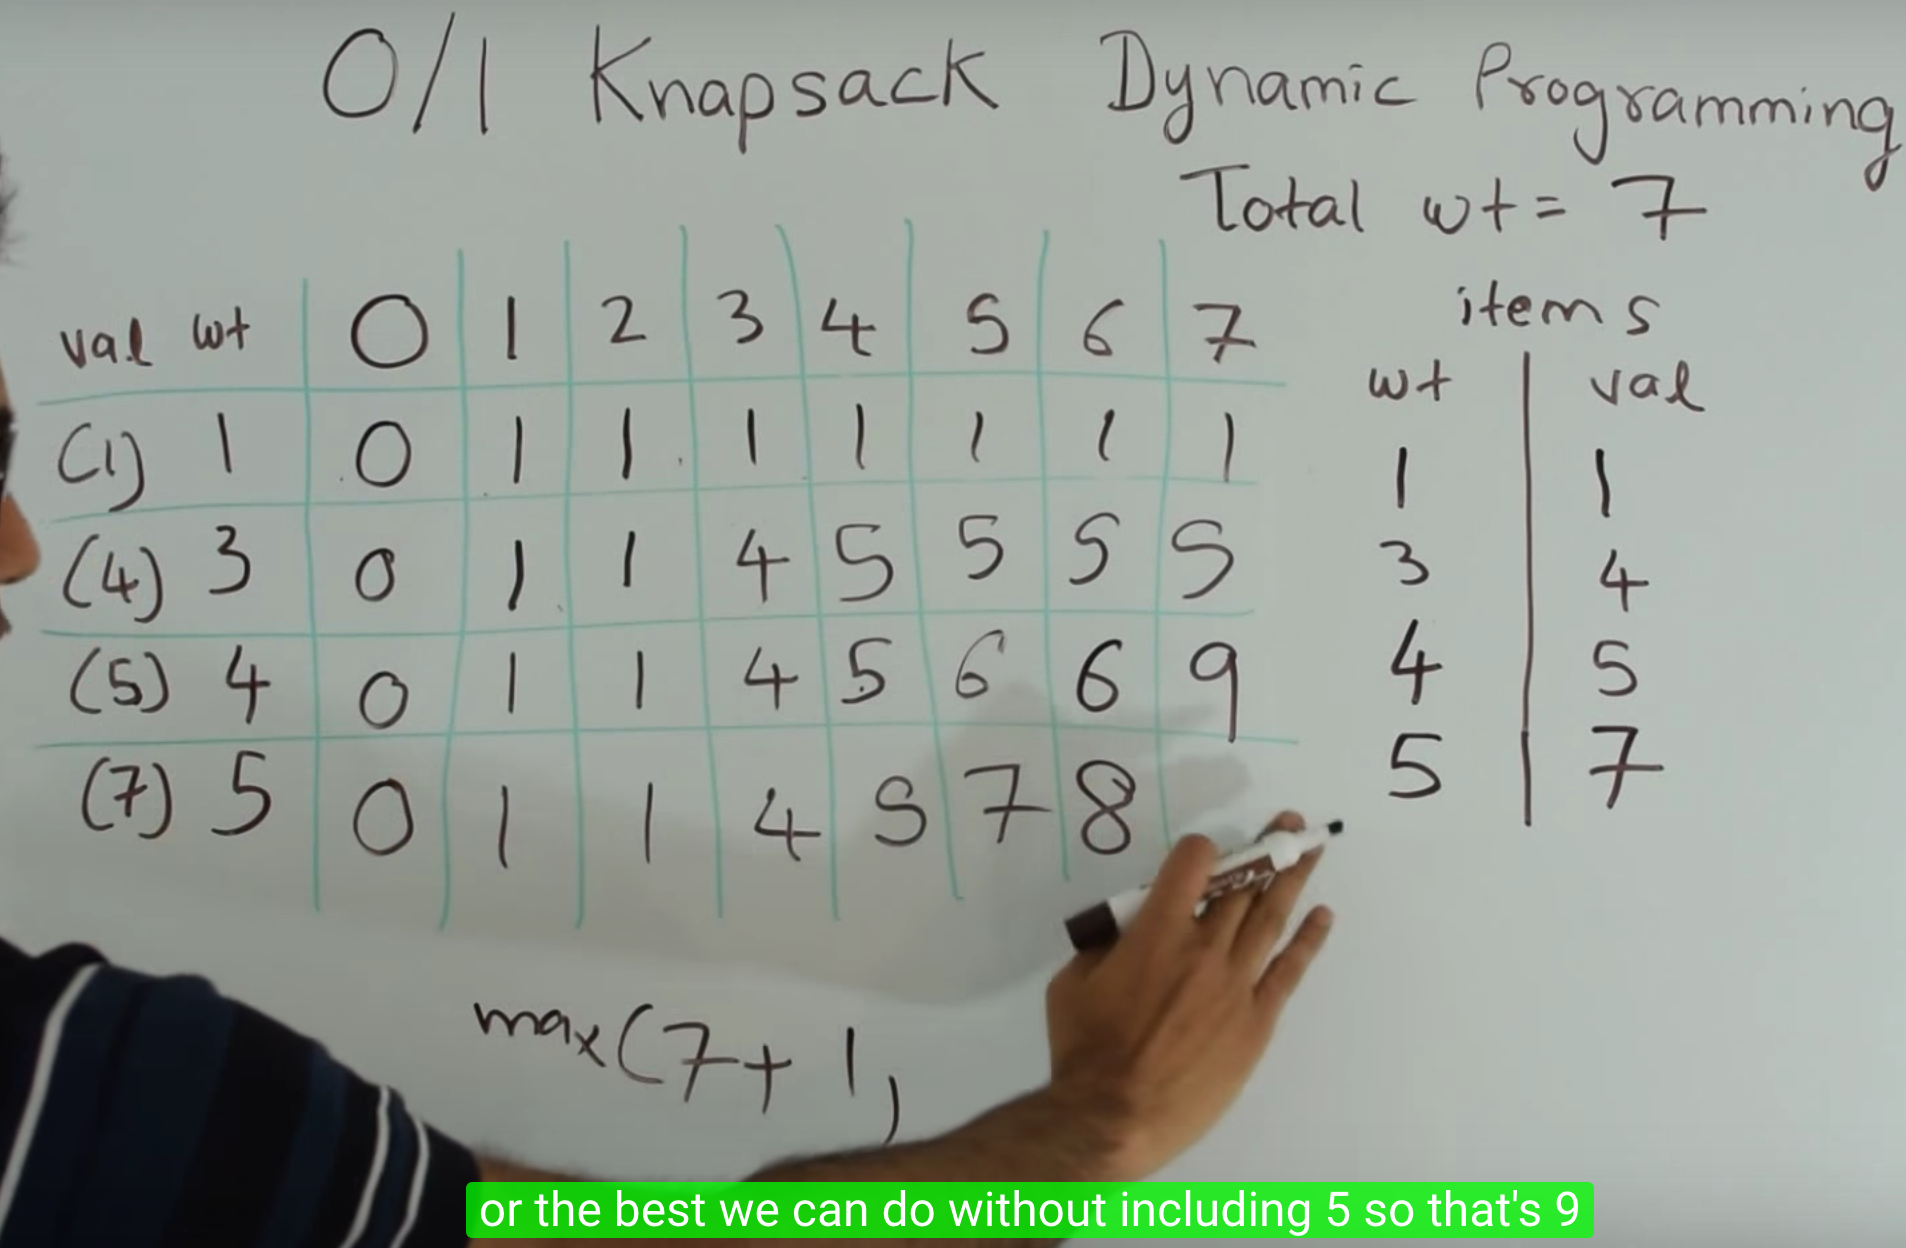 0/1 Knapsack Dynamic Programming
Total wt = 7
val wt 0 1 2 3 4 5 6 7
(1) 1 0 1 1 1 1 1 1 1
(4) 3 0 1 1 4 5 5 5 5
(5) 4 0 1 1 4 5 6 6 9
(7) 5 0 1 1 4 5 7 8
items
wt val
1 1
3 4
4 5
5 7
max(7+1,
or the best we can do without including 5 so that's 9